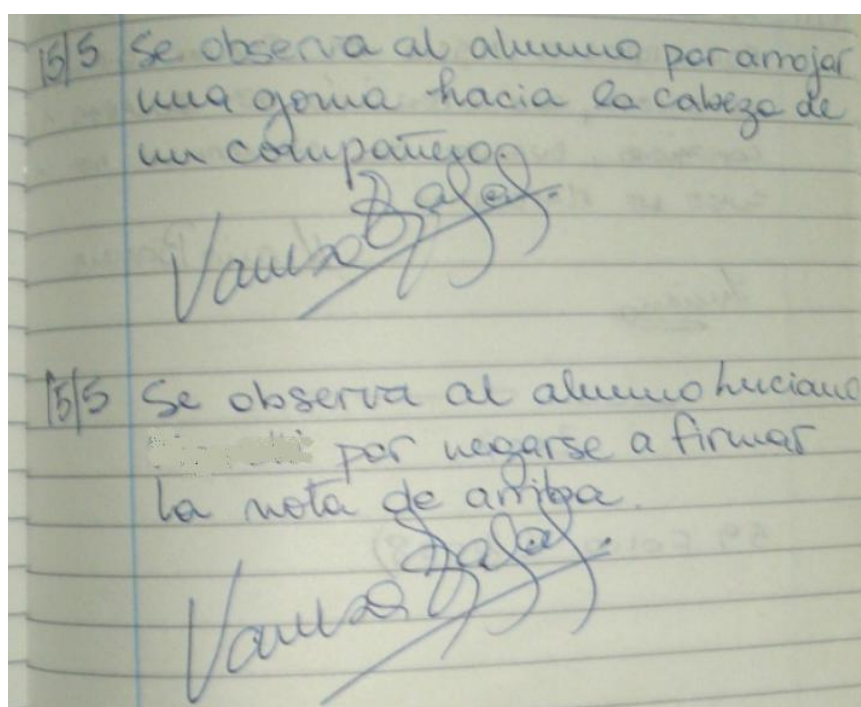 15/5 Se observa al alumno por arrojar
una goma hacia la cabeza de
un compañero.
15/5 Se observa al alumno Luciano
por negarse a firmar
la nota de arriba.